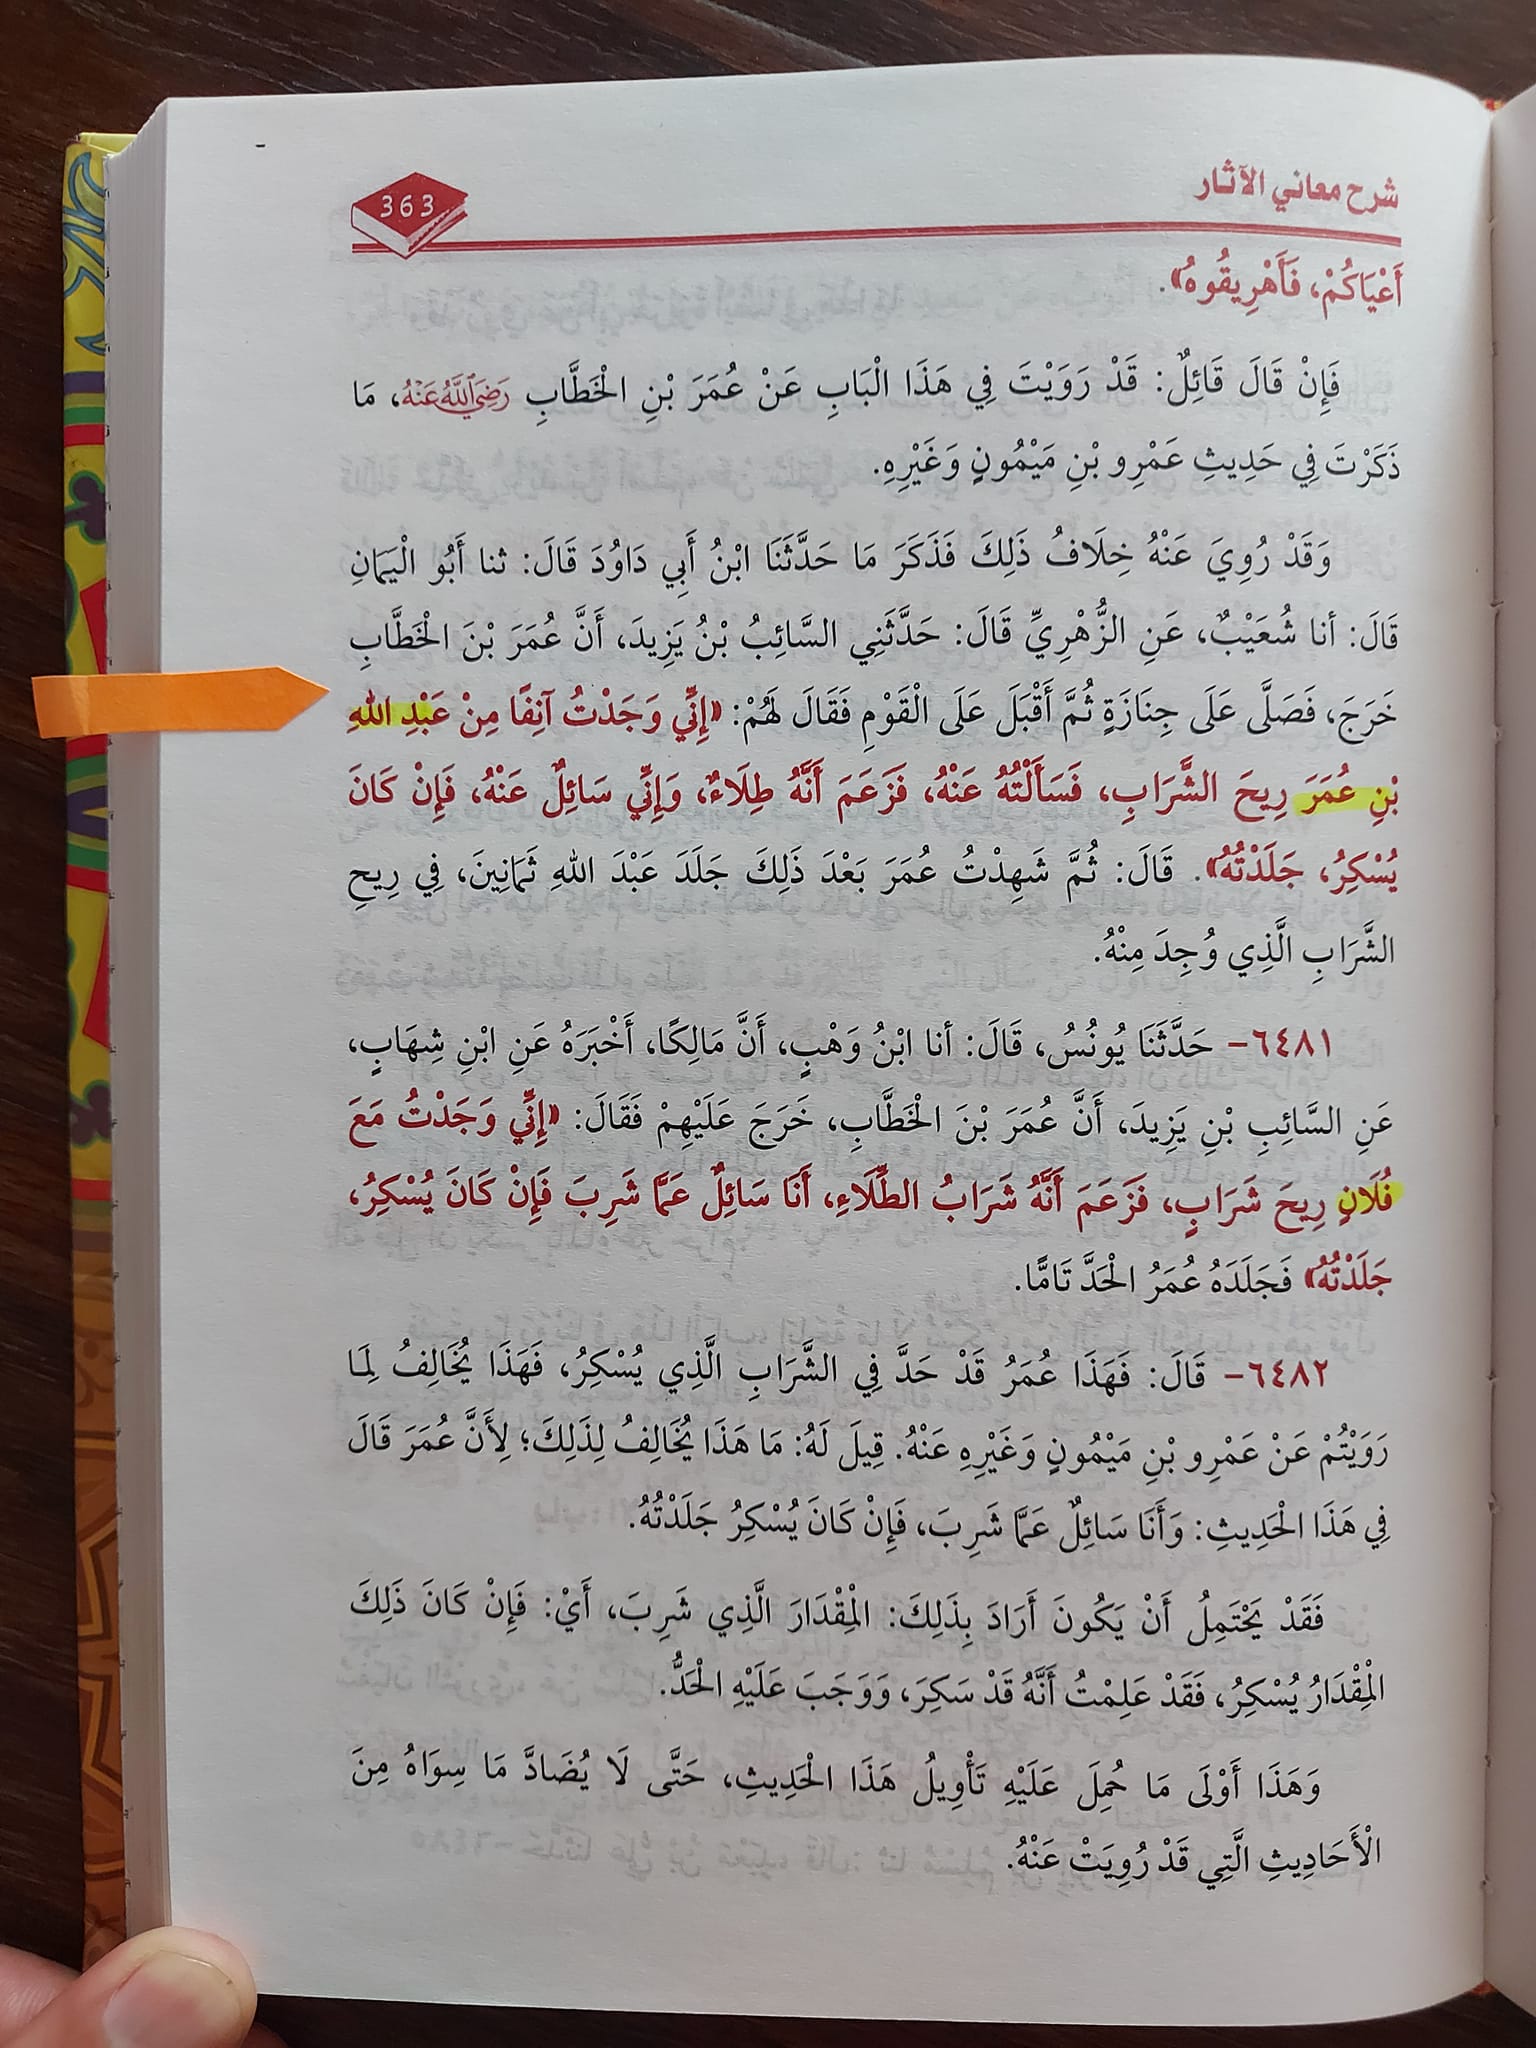 شرح معاني الآثار
363
أَعْيَاكُمْ، فَأَهْرِيقُوهُ».
فَإِنْ قَالَ قَائِلٌ: قَدْ رَوَيْتَ فِي هَذَا الْبَابِ عَنْ عُمَرَ بْنِ الْخَطَّابِ رَضِيَ اللَّهُ عَنْهُ، مَا
ذَكَرْتَ فِي حَدِيثِ عَمْرِو بْنِ مَيْمُونٍ وَغَيْرِهِ.
وَقَدْ رُوِيَ عَنْهُ خِلَافُ ذَلِكَ فَذَكَرَ مَا حَدَّثَنَا ابْنُ أَبِي دَاوُدَ قَالَ: ثنا أَبُو الْيَمَانِ
قَالَ: أنا شُعَيْبٌ، عَنِ الزُّهْرِيِّ قَالَ: حَدَّثَنِي السَّائِبُ بْنُ يَزِيدَ، أَنَّ عُمَرَ بْنَ الْخَطَّابِ
خَرَجَ، فَصَلَّى عَلَى جِنَازَةٍ ثُمَّ أَقْبَلَ عَلَى الْقَوْمِ فَقَالَ لَهُمْ: «إِنِّي وَجَدْتُ آنِفًا مِنْ عَبْدِ اللهِ
بْنِ عُمَرَ رِيحَ الشَّرَابِ، فَسَأَلْتُهُ عَنْهُ، فَزَعَمَ أَنَّهُ طِلَاءٌ، وَإِنِّي سَائِلٌ عَنْهُ، فَإِنْ كَانَ
يُسْكِرُ، جَلَدْتُهُ». قَالَ: ثُمَّ شَهِدْتُ عُمَرَ بَعْدَ ذَلِكَ جَلَدَ عَبْدَ اللهِ ثَمَانِينَ، فِي رِيحِ
الشَّرَابِ الَّذِي وُجِدَ مِنْهُ.
٦٤٨١- حَدَّثَنَا يُونُسُ، قَالَ: أنا ابْنُ وَهْبٍ، أَنَّ مَالِكًا، أَخْبَرَهُ عَنِ ابْنِ شِهَابٍ،
عَنِ السَّائِبِ بْنِ يَزِيدَ، أَنَّ عُمَرَ بْنَ الْخَطَّابِ، خَرَجَ عَلَيْهِمْ فَقَالَ: «إِنِّي وَجَدْتُ مَعَ
فُلَانٍ رِيحَ شَرَابٍ، فَزَعَمَ أَنَّهُ شَرَابُ الطِّلَاءِ، أَنَا سَائِلٌ عَمَّا شَرِبَ فَإِنْ كَانَ يُسْكِرُ،
جَلَدْتُهُ» فَجَلَدَهُ عُمَرُ الْحَدَّ تَامًّا.
٦٤٨٢- قَالَ: فَهَذَا عُمَرُ قَدْ حَدَّ فِي الشَّرَابِ الَّذِي يُسْكِرُ، فَهَذَا يُخَالِفُ لِمَا
رَوَيْتُمْ عَنْ عَمْرِو بْنِ مَيْمُونٍ وَغَيْرِهِ عَنْهُ. قِيلَ لَهُ: مَا هَذَا يُخَالِفُ لِذَلِكَ؛ لِأَنَّ عُمَرَ قَالَ
فِي هَذَا الْحَدِيثِ: وَأَنَا سَائِلٌ عَمَّا شَرِبَ، فَإِنْ كَانَ يُسْكِرُ جَلَدْتُهُ.
فَقَدْ يَحْتَمِلُ أَنْ يَكُونَ أَرَادَ بِذَلِكَ: الْمِقْدَارَ الَّذِي شَرِبَ، أَيْ: فَإِنْ كَانَ ذَلِكَ
الْمِقْدَارُ يُسْكِرُ، فَقَدْ عَلِمْتُ أَنَّهُ قَدْ سَكِرَ، وَوَجَبَ عَلَيْهِ الْحَدُّ.
وَهَذَا أَوْلَى مَا حُمِلَ عَلَيْهِ تَأْوِيلُ هَذَا الْحَدِيثِ، حَتَّى لَا يُضَادَّ مَا سِوَاهُ مِنَ
الْأَحَادِيثِ الَّتِي قَدْ رُوِيَتْ عَنْهُ.